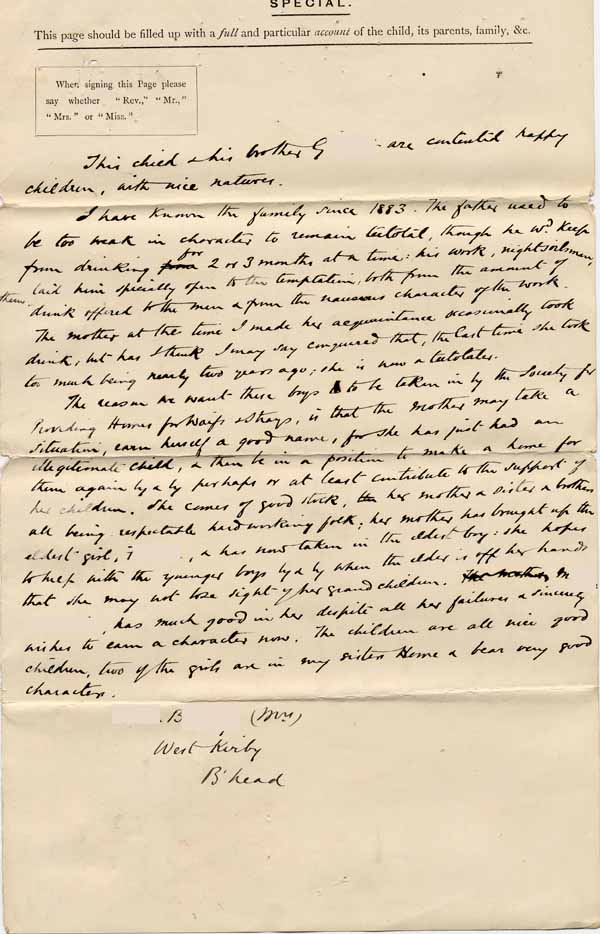 SPECIAL.
This page should be filled up with a full and particular account of the child, its parents, family, &c.
When signing this Page please
say whether "Rev.," "Mr.,"
"Mrs." or "Miss."
This child & his brother G are contented happy
children, with nice natures.
I have known the family since 1883. The father used to
be too weak in character to remain teetotal, though he wd. keep
from drinking from for 2 or 3 months at a time: his work, nightsoilman,
laid him specially open to the temptation, both from the amount of
drink offered to the men & from the nauseous character of the work.
them
The mother at the time I made her acquaintance occasionally took
drink, but has I think I may say conquered that, the last time she took
too much being nearly two years ago; she is now a teetotaler.
The reason we want these boys to be taken in by the Society for
Providing Homes for Waifs & Strays, is that the mother may take a
situation, earn herself a good name, for she has just had an
illegitimate child, & then be in a position to make a home for
them again by & by perhaps or at least contribute to the support of
her children. She comes of good stock, her mother & sister & brothers
all being respectable hardworking folk; her mother has brought up the
eldest girl, , & has now taken in the eldest boy: she hopes
to help with the younger boys by & by when the elder is off her hands
that she may not lose sight of her grandchildren. The mother M
, has much good in her despite all her failures & sincerely
wishes to earn a character now. The children are all nice good
children, two of the girls are in my sisters Home & bear very good
characters.
. B (Mrs)
West Kirby
B'head